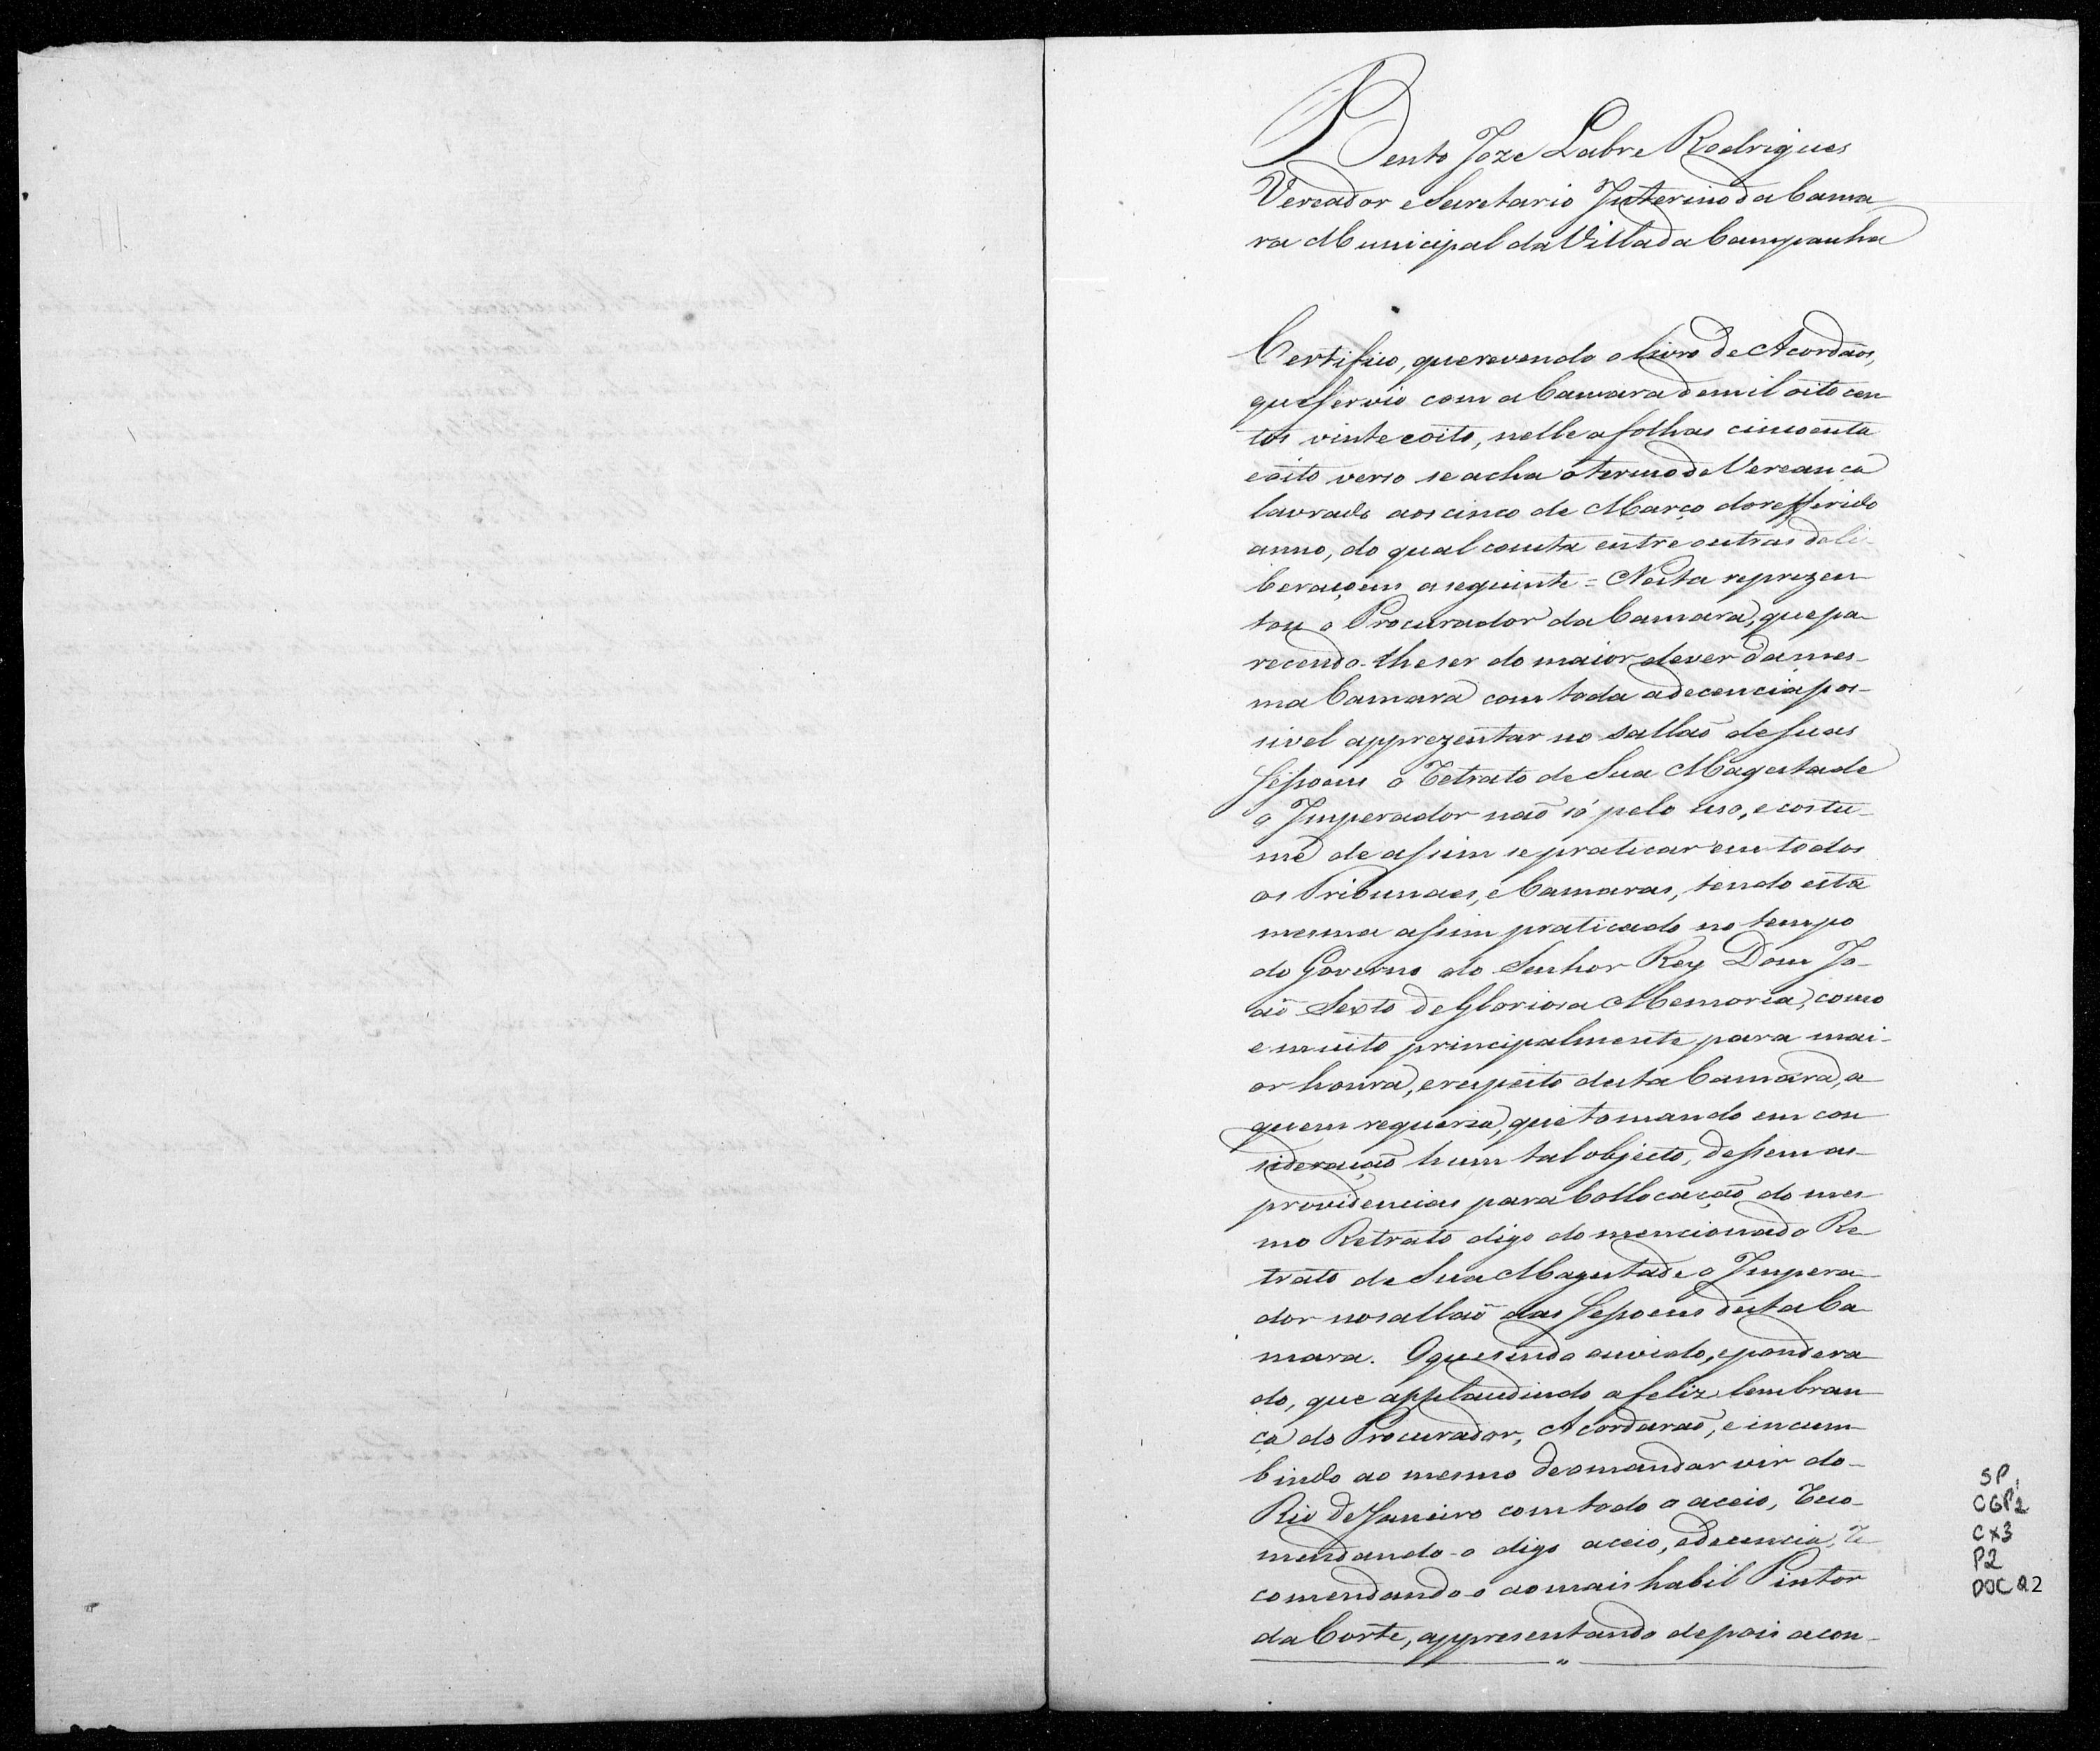 Bento Joze Labre Rodrigues
Vereador e Secretario Interino da Cama
ra Municipal da Villa da Campanha
Certifico, que revendo o Livro de Acordaõs,
que servio com a Camara de mil oito cen
tos vinte e oito, nelle a folhas cincoenta
e oito verso se acha o termo de Vereança
lavrado aos cinco de Março do refferido
anno, do qual consta entre outras deli
beraçoens a seguinte = Nesta reprezen
tou o Procurador da Camara, que pa
recendo-lhe ser do maior dever da mes-
ma Camara com toda a decencia pos-
sivel apprezentar no sallaõ de suas
Sessoens o Retrato de Sua Magestade
o Imperador naõ só pelo uso, e costu-
me de assim se praticar em todos
os Tribunaes, e Camaras, tendo esta
mesma assim praticado no tempo
do Governo do Senhor Rey Dom Jo-
aõ Sexto de Gloriosa Memoria, como
e muito principalmente para mai-
or honra, e respeito desta Camara, a
quem requeria, que tomando em con
sideraçaõ hum tal objecto, dessem as
providencias para Collocaçaõ do mes-
mo Retrato digo do mencionado Re
trato de Sua Magestade o Impera-
dor no sallaõ das Sessoens desta Ca
mara. O que sendo ouvido, e pondera
do, que applaudindo a feliz lembran
ça do Procurador, Acordaraõ, e incum
bindo ao mesmo de o mandar vir do-
Rio de Janeiro com todo o aceio, Reco-
mendando-o digo aceio, e decencia, Re
comendando-o ao mais habil Pintor
da Corte, appresentando depois a con-
SP
CGP1
CX3
P2
DOC 22